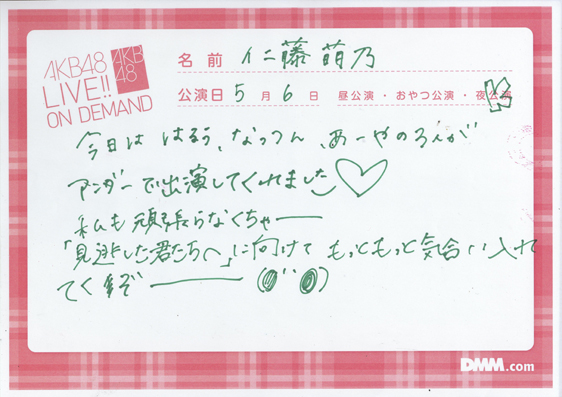 AKB48
LIVE!!
ON DEMAND
AKB
48
名前 仁藤萌乃
公演日 5月6日 昼公演・おやつ公演・夜公演
今日は はるぅ、なっつん、あーやの3人が
アンダーで出演してくれました
私も頑張らなくちゃー
「見逃した君たちへ」に向けて もっともっと気合い入れ
てくぞー
DMM.com